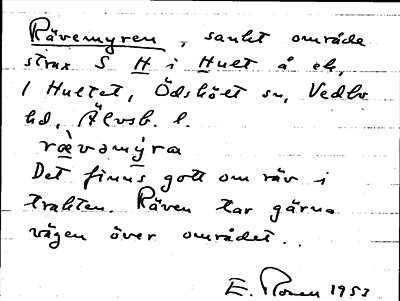 Rävemyren, sankt område
strax S H i Hult å ek.
1 Hultet, Ödskölt sn, Vedbo
hd, Älvsb. l.
rævəmýra
Det finns gott om räv i
trakten. Räven tar gärna
vägen över området..
E. 1953